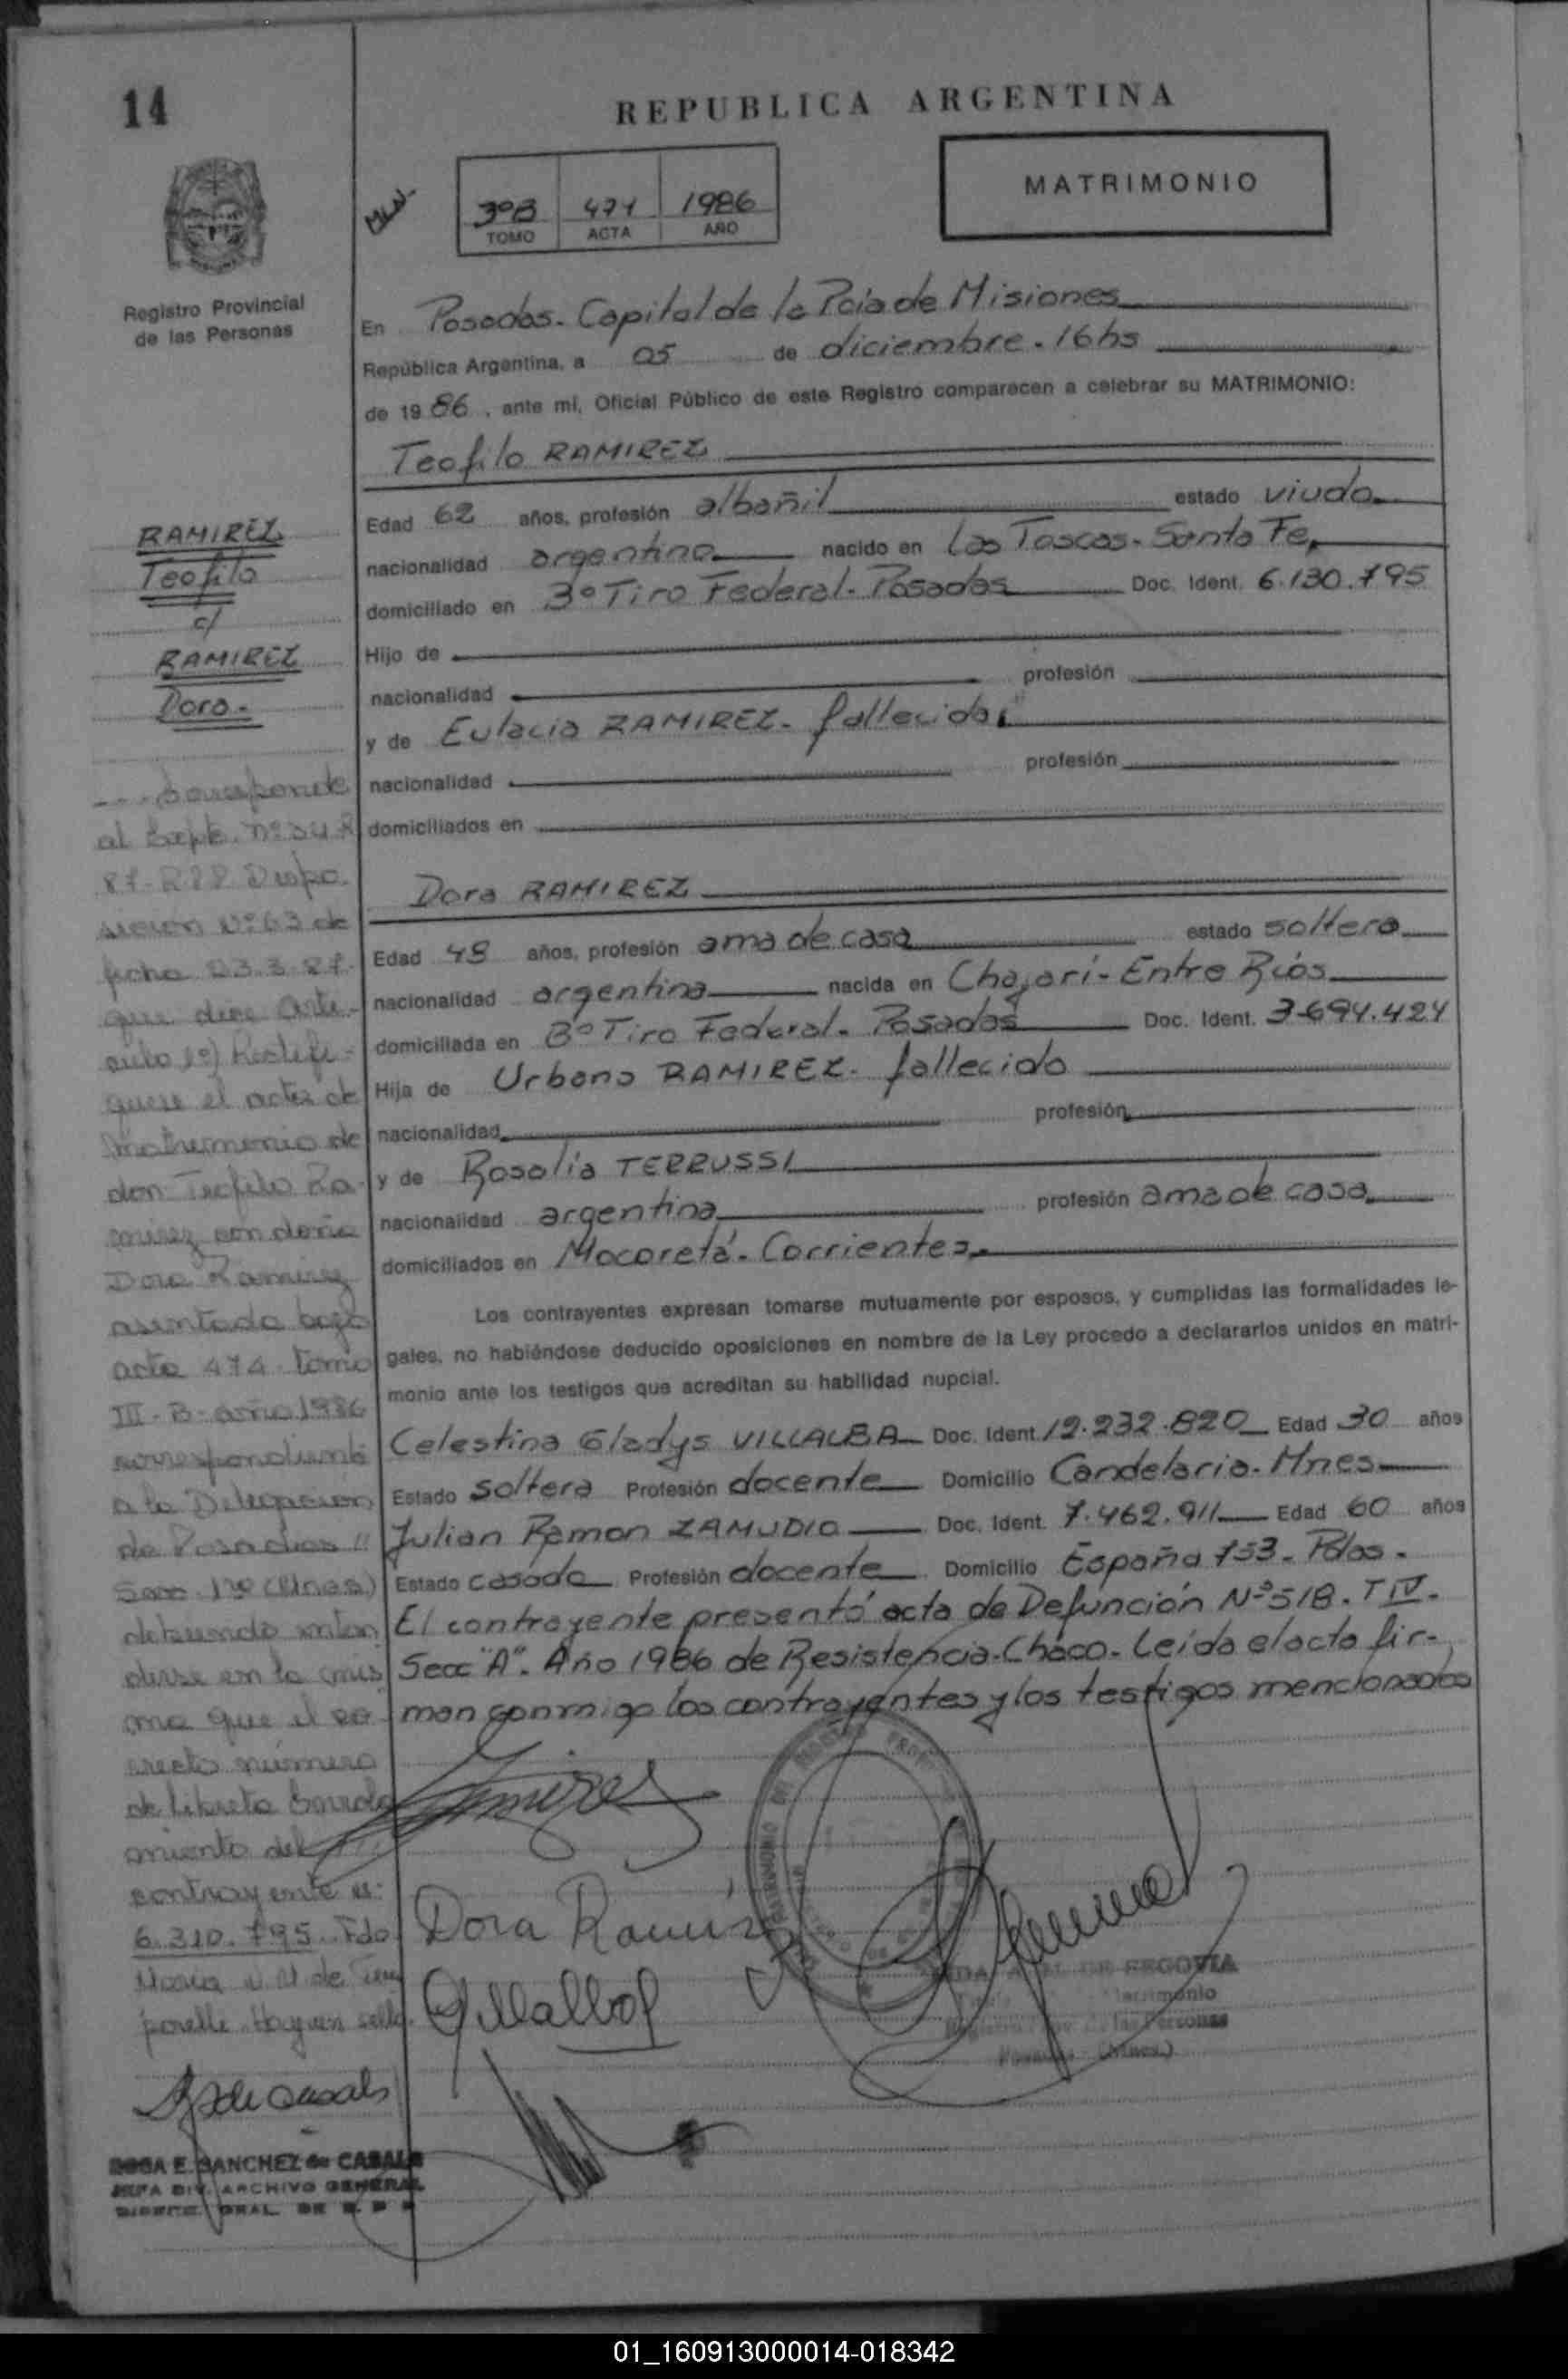 14
REPUBLICA ARGENTINA
MATRIMONIO
3ºB 471 1986
TOMO ACTA AÑO
Registro Provincial
de las Personas
En Posadas. Capital de la Pcia de Misiones
República Argentina, a 05 de diciembre. 16 hs
de 1986, ante mí, Oficial Público de este Registro comparecen a celebrar su MATRIMONIO:
Teofilo RAMIREZ
Edad 62 años, profesión albañil estado viudo
nacionalidad argentina nacido en Las Toscas - Santa Fe
domiciliado en 3º Tiro Federal - Posadas Doc. Ident. 6.130.795
Hijo de
nacionalidad profesión
y de Eulacia RAMIREZ - fallecida
nacionalidad profesión
domiciliados en
Dora RAMIREZ
Edad 48 años, profesión ama de casa estado soltera
nacionalidad argentina nacida en Chajarí - Entre Ríos
domiciliada en 3º Tiro Federal - Posadas Doc. Ident. 3.694.424
Hija de Urbano RAMIREZ - fallecido
nacionalidad profesión
y de Rosalia TERRUSSI
nacionalidad argentina profesión ama de casa
domiciliados en Mocoretá - Corrientes
Los contrayentes expresan tomarse mutuamente por esposos, y cumplidas las formalidades le-
gales, no habiéndose deducido oposiciones en nombre de la Ley procedo a declararlos unidos en matri-
monio ante los testigos que acreditan su habilidad nupcial.
Celestina Gladys VILLALBA Doc. Ident. 12.232.820 Edad 30 años
Estado soltera Profesión docente Domicilio Candelaria - Mnes
Julian Ramon ZAMUDIO Doc. Ident. 7.462.911 Edad 60 años
Estado casado Profesión docente Domicilio España 753 - Pdas.
El contrayente presentó acta de Defunción Nº 518. T IV.
Secc "A". Año 1986 de Resistencia - Chaco - Leida el acta fir-
man conmigo los contrayentes y los testigos mencionados
Dora Ramirez
GVillalba
DE SEGOVIA
Matrimonio
de las Personas
(Mnes.)
RAMIREZ
Teofilo
c/
RAMIREZ
Dora.-
--- Corresponde
al Expte. Nº
87- Dispo-
sicion Nº 63 de
fecha 23.3.87-
que dice Arti-
culo 1º) Rectifi-
quese el acta de
Matrimonio de
don Teofilo Ra-
mirez con doña
Dora Ramirez
asentada bajo
acta 474 tomo
III - B - año 1986
correspondiente
a la Delegacion
de Posadas
Secc. 1º (Mnes)
debiendo enten-
derse en la mis-
ma que el co-
rrecto número
de Libreta Enrola-
miento del
contrayente es:
6.310.795. Fdo
Hay un sello.
ROSA E. SANCHEZ de CASALS
JEFA DIV. ARCHIVO GENERAL
GRAL. DE
01_160913000014-018342